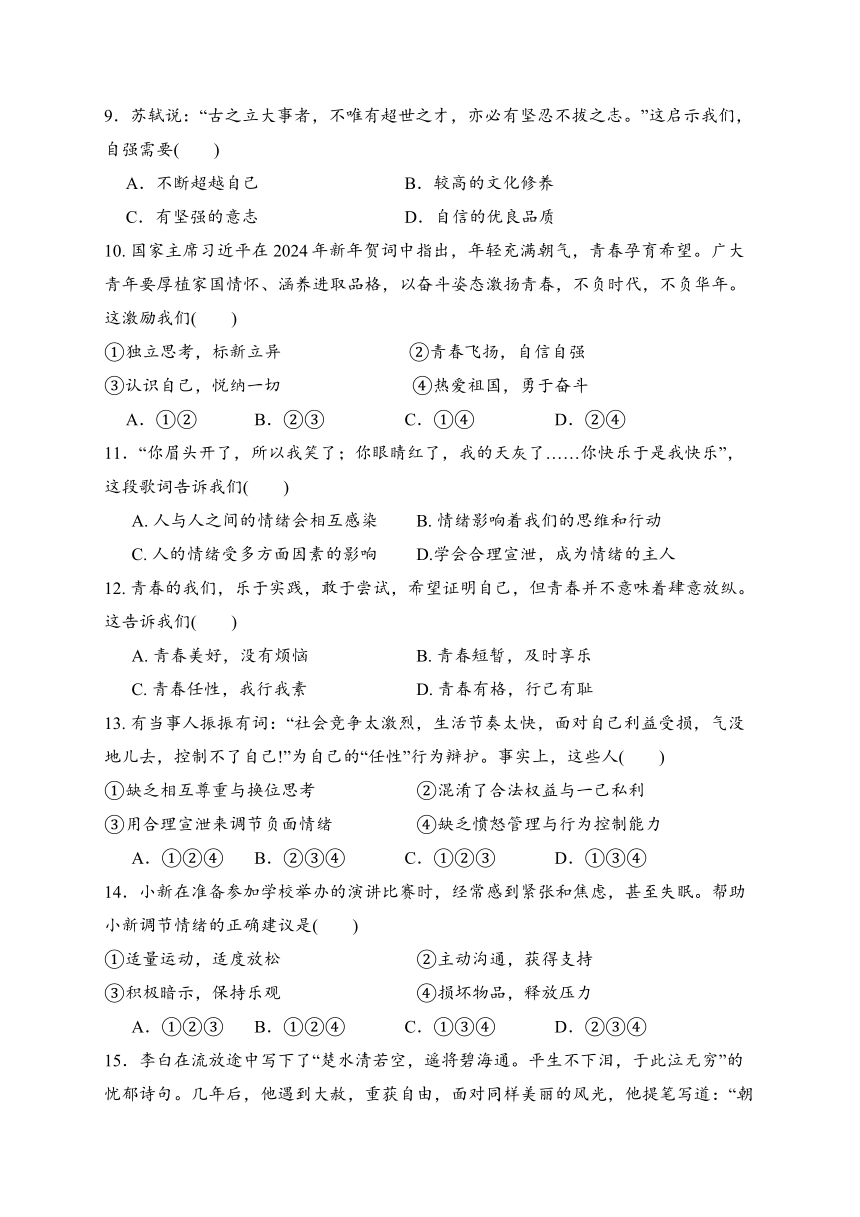 9．苏轼说：“古之立大事者，不唯有超世之才，亦必有坚忍不拔之志。”这启示我们，
自强需要(　　)
A．不断超越自己 B．较高的文化修养
C．有坚强的意志 D．自信的优良品质
10. 国家主席习近平在 2024 年新年贺词中指出，年轻充满朝气，青春孕育希望。广大
青年要厚植家国情怀、涵养进取品格，以奋斗姿态激扬青春，不负时代，不负华年。
这激励我们(　　)
①独立思考，标新立异 ②青春飞扬，自信自强
③认识自己，悦纳一切 ④热爱祖国，勇于奋斗
A．①② B．②③ C．①④ D．②④
11．“你眉头开了，所以我笑了；你眼睛红了，我的天灰了……你快乐于是我快乐”，
这段歌词告诉我们(　　)
A. 人与人之间的情绪会相互感染 B. 情绪影响着我们的思维和行动
C. 人的情绪受多方面因素的影响 D.学会合理宣泄，成为情绪的主人
12. 青春的我们，乐于实践，敢于尝试，希望证明自己，但青春并不意味着肆意放纵。
这告诉我们(　　)
A. 青春美好，没有烦恼 B. 青春短暂，及时享乐
C. 青春任性，我行我素 D. 青春有格，行己有耻
13. 有当事人振振有词：“社会竞争太激烈，生活节奏太快，面对自己利益受损，气没
地儿去，控制不了自己!”为自己的“任性”行为辩护。事实上，这些人(　　)
①缺乏相互尊重与换位思考 ②混淆了合法权益与一己私利
③用合理宣泄来调节负面情绪 ④缺乏愤怒管理与行为控制能力
A．①②④ B．②③④ C．①②③ D．①③④
14．小新在准备参加学校举办的演讲比赛时，经常感到紧张和焦虑，甚至失眠。帮助
小新调节情绪的正确建议是(　　)
①适量运动，适度放松 ②主动沟通，获得支持
③积极暗示，保持乐观 ④损坏物品，释放压力
A．①②③ B．①②④ C．①③④ D．②③④
15．李白在流放途中写下了“楚水清若空，遥将碧海通。平生不下泪，于此泣无穷”的
忧郁诗句。几年后，他遇到大赦，重获自由，面对同样美丽的风光，他提笔写道：“朝